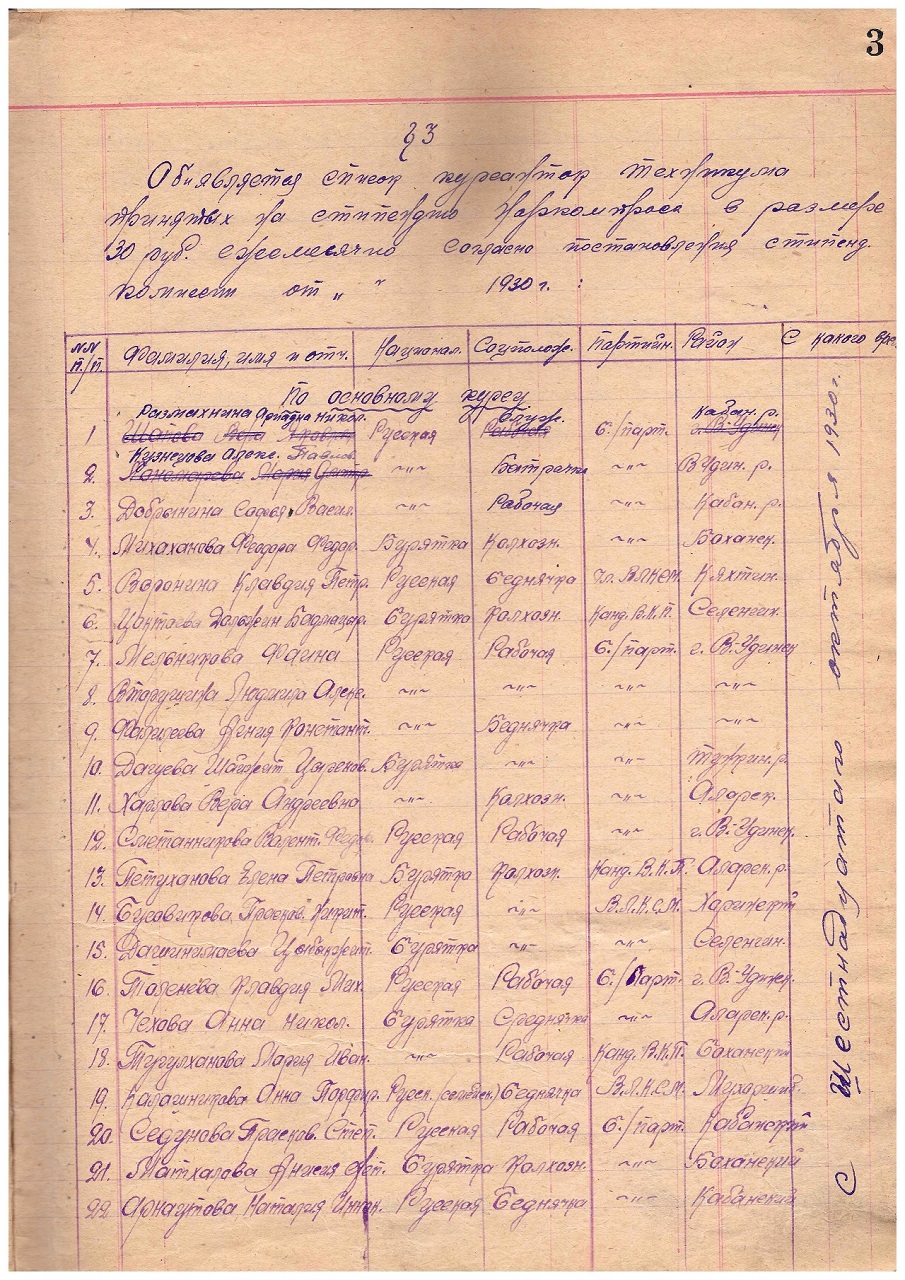 3
§ 3
Объявляется список курсантор техникума
принятых на стипендию Наркомпроса в размере
30 руб. ежемесячно согласно постановления стипенд.
комисси от „ " 1930 г. :
NN п./п. Фамилия, имя и отч. Национал. Соцположе. Партийн. Район С какого вре
По основному курсу
Размахнина Ариадна Никол. Служ. Кабан. р.
1 Вера Русская Рабочая б./парт. г. В-Удинск
Кузнецова Алекс. Павлов.
2. Пономарева Мария Батрачка -"- ВУдин. р.
3. Добрынина Софья Васил. Рабочая -"- Кабан. р.
4. Михаханова Феодора Федор. Бурятка Колхозн. -"- Боханск.
5. Воронина Клавдия Петр. Русская беднячка чл. ВЛКСМ. Кяхтин.
6. Цонтоева Должин Бурятка Колхозн. Канд. В.К.П. Селенгин.
7. Мельникова Фаина Русская Рабочая б./парт. г. В-Удинск
8. Вторушина Людмила Алекс. -"- -"- -"- -"-
9. Ксения Констант. -"- Беднячка -"- -"-
10. Дагуева Цыренов. Бурятка -"- -"- Тункин. р.
11. Харлова Вера Андреевна -"- Колхозн. -"- Аларск.
12. Сметанникова Валент. Федор. Русская Рабочая -"- г. В-Удинск
13. Петуханова Елена Петровна Бурятка Колхозн. Канд. В.К.П. Аларск. р.
14. Бутовикова Прасков. Никит. Русская -"- В.Л.К.С.М. Харинский
15. Дашинимаева Бурятка -"- -"- Селенгин.
16. Таленева Клавдия Мих. Русская Рабочая б./Парт. г. В-Удинск.
17. Чехова Анна Никол. бурятка Среднячка -"- Аларск. р.
18. Тугулханова Мария Иван. -"- Рабочая Канд. В.К.П. Боханский
19. Калашникова Анна Порфир. Русск. (семейск.) беднячка В.Л.К.С.М. Мухоршиб.
20. Седунова Прасков. Степ. Русская Рабочая б./парт. Кабанский
21. Матхалова Анисия Бурятка Колхозн. -"- Боханский
22 Арнаутова Наталия Иннок. Русская Беднячка -"- Кабанский
С Шестнадцатого октября 1930 г.